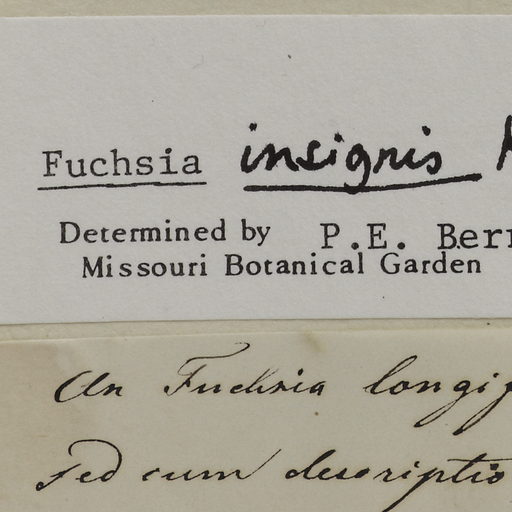 Fuchsia insignis
Determined by P.E. Berr
Missouri Botanical Garden
An Fuchsia longif
sed cum descriptio